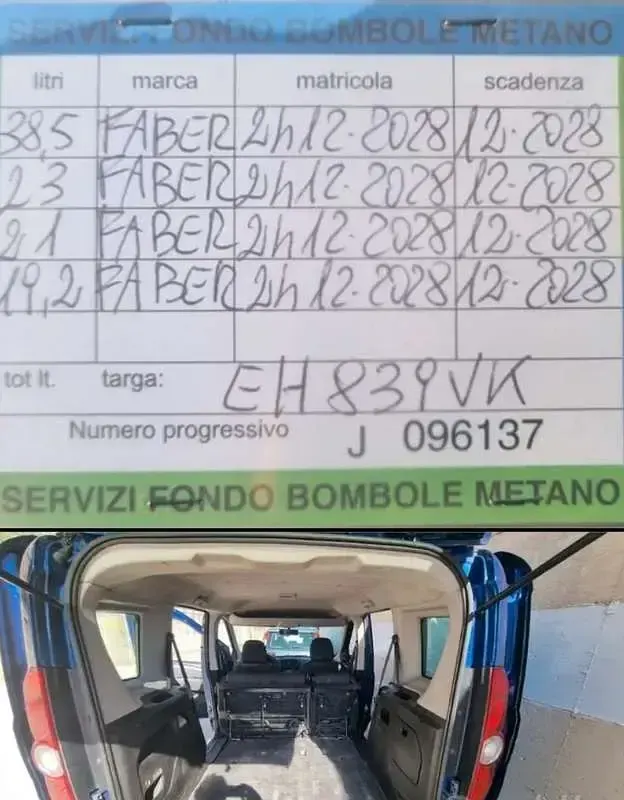 SERVIZI FONDO BOMBOLE METANO
litri marca matricola scadenza
38,5 FABER 2h12-2028 12-2028
23 FABER 2h12-2028 12-2028
21 FABER 2h12-2028 12-2028
19,2 FABER 2h12-2028 12-2028
tot lt. targa: EH839VK
Numero progressivo J 096137
SERVIZI FONDO BOMBOLE METANO